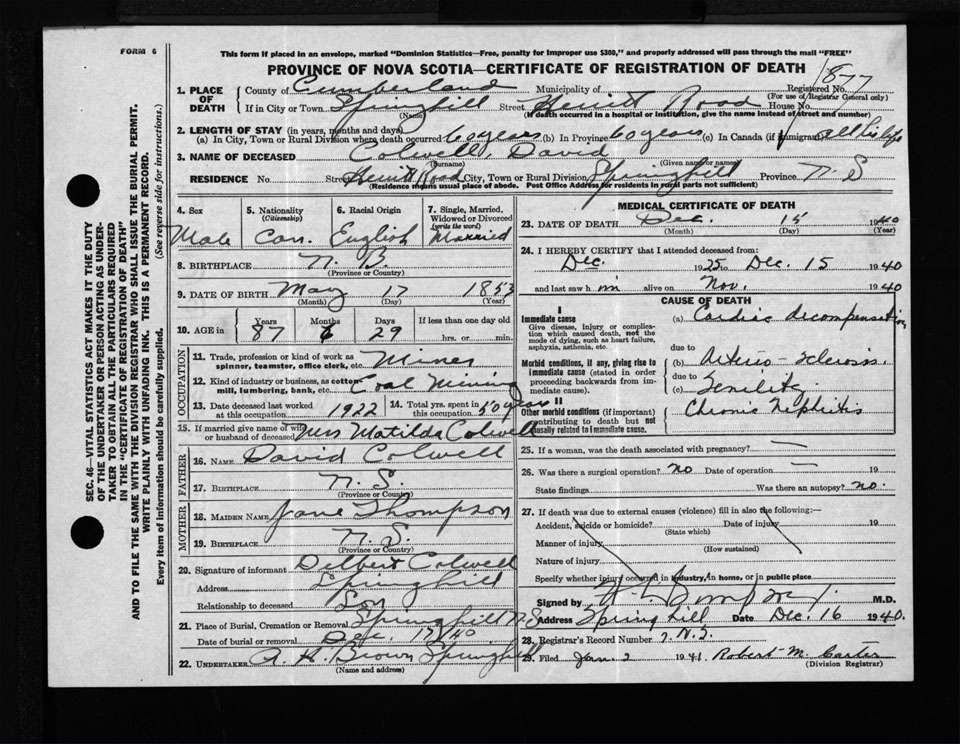 FORM 6
This form if placed in an envelope, marked "Dominion Statistics—Free, penalty for improper use $300," and properly addressed will pass through the mail "FREE"
PROVINCE OF NOVA SCOTIA—CERTIFICATE OF REGISTRATION OF DEATH
877
1. PLACE OF DEATH County of Cumberland Municipality of Registered No.
(For use of Registrar General only)
If in City or Town Springhill Street Road House No.
(Name) (If death occurred in a hospital or institution, give the name instead of street and number)
2. LENGTH OF STAY (in years, months and days)
(a) In City, Town or Rural Division where death occurred 60 years (b) In Province 60 years (c) In Canada (if immigrant) all his life
3. NAME OF DECEASED Colwell, David
(Surname) (Given name or names)
RESIDENCE No. Street Road City, Town or Rural Division Springhill Province N. S
(Residence means usual place of abode. Post Office Address for residents in rural parts not sufficient)
4. Sex Male
5. Nationality (Citizenship) Can.
6. Racial Origin English
7. Single, Married, Widowed or Divorced (write the word) Married
8. BIRTHPLACE N. B.
(Province or Country)
9. DATE OF BIRTH May 17 1853
(Month) (Day) (Year)
10. AGE in Years Months Days If less than one day old
87 6 29 hrs. or min.
OCCUPATION
11. Trade, profession or kind of work as spinner, teamster, office clerk, etc. Miner
12. Kind of industry or business, as cotton-mill, lumbering, bank, etc. Coal Mining
13. Date deceased last worked at this occupation 1922 14. Total yrs. spent in this occupation 50 years
15. If married give name of wife or husband of deceased Mrs Matilda Colwell
FATHER
16. NAME David Colwell
17. BIRTHPLACE N. S.
(Province or Country)
MOTHER
18. MAIDEN NAME Jane Thompson
19. BIRTHPLACE N. S.
(Province or Country)
20. Signature of informant Delbert Colwell
Address Springhill
Relationship to deceased Son
21. Place of Burial, Cremation or Removal Springhill N.S
Date of burial or removal Dec. 17/40
22. UNDERTAKER A. H. Brown Springhill
(Name and address)
MEDICAL CERTIFICATE OF DEATH
23. DATE OF DEATH Dec. 15 1940
(Month) (Day) (Year)
24. I HEREBY CERTIFY that I attended deceased from:
Dec. 1925 to Dec. 15 1940
and last saw h im alive on Nov. 1940
CAUSE OF DEATH
Immediate cause (a) Cardiac decompensation
Give disease, injury or complication which caused death, not the mode of dying, such as heart failure, asphyxia, asthenia, etc.
due to
Morbid conditions, if any, giving rise to immediate cause (stated in order proceeding backwards from immediate cause).
(b) Arterio-sclerosis
due to
(c) Senility
II
Other morbid conditions (if important) contributing to death but not causally related to immediate cause.
Chronic Nephritis
25. If a woman, was the death associated with pregnancy? —
26. Was there a surgical operation? no Date of operation — 19
State findings Was there an autopsy? no.
27. If death was due to external causes (violence) fill in also the following:—
Accident, suicide or homicide? Date of injury 19
(State which)
Manner of injury
(How sustained)
Nature of injury
Specify whether injury occurred in industry, in home, or in public place
Signed by M.D.
Address Spring hill Date Dec. 16 1940.
28. Registrar's Record Number
29. Filed Jan 2 1941 Robert M. Carter
(Division Registrar)
SEC. 46—VITAL STATISTICS ACT MAKES IT THE DUTY
OF THE UNDERTAKER OR PERSON ACTING AS UNDER-
TAKER TO OBTAIN ALL THE PARTICULARS REQUIRED
IN THE "CERTIFICATE OF REGISTRATION OF DEATH"
AND TO FILE THE SAME WITH THE DIVISION REGISTRAR WHO SHALL ISSUE THE BURIAL PERMIT.
WRITE PLAINLY WITH UNFADING INK. THIS IS A PERMANENT RECORD.
Every item of information should be carefully supplied. (See reverse side for instructions.)